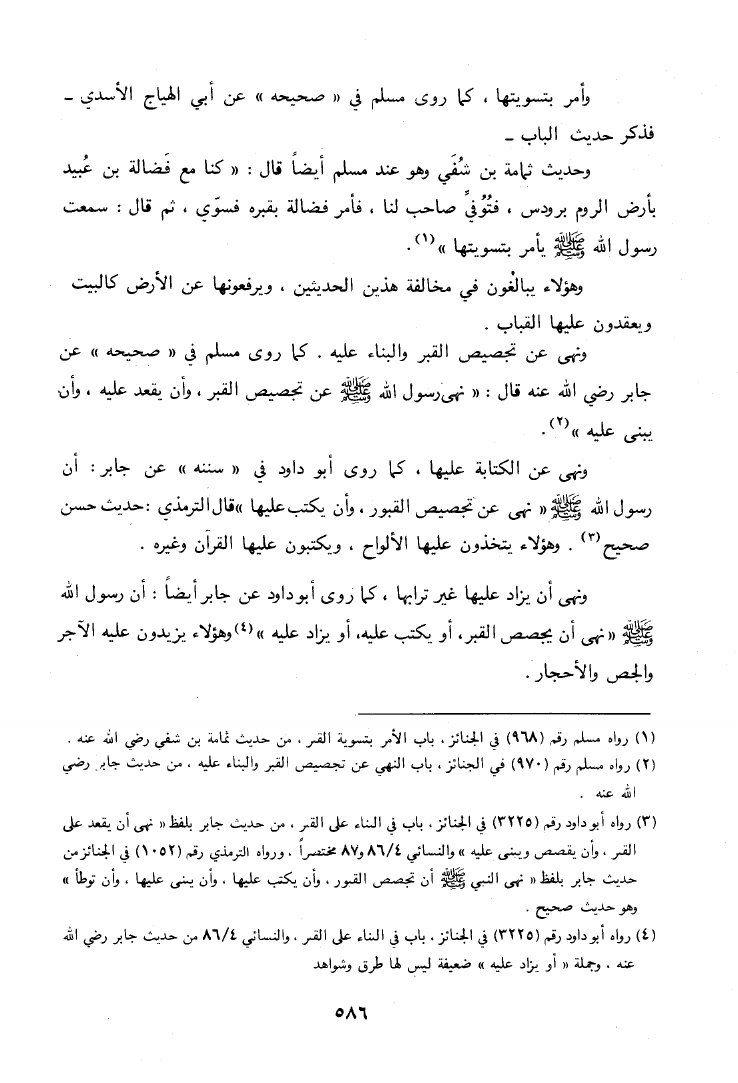 وأمر بتسويتها ، كما روى مسلم في « صحيحه » عن أبي الهياج الأسدي ـ
فذكر حديث الباب ـ
وحديث ثمامة بن شُفَي وهو عند مسلم أيضاً قال : « كنا مع فَضالة بن عُبيد
بأرض الروم برودس ، فتُوُفيِّ صاحب لنا ، فأمر فضالة بقبره فسوّي ، ثم قال : سمعت
رسول الله ﷺ يأمر بتسويتها »(١).
وهؤلاء يبالغْون في مخالفة هذين الحديثين ، ويرفعونها عن الأرض كالبيت
ويعقدون عليها القباب .
ونهى عن تجصيص القبر والبناء عليه . كما روى مسلم في « صحيحه » عن
جابر رضي الله عنه قال : « نهى رسول الله ﷺ عن تجصيص القبر ، وأن يقعد عليه ، وأن
يبنى عليه »(٢).
ونهى عن الكتابة عليها ، كما روى أبو داود في « سننه » عن جابر : أن
رسول الله ﷺ « نهى عن تجصيص القبور ، وأن يكتب عليها »قال الترمذي :حديث حسن
صحيح(٣) . وهؤلاء يتخذون عليها الألواح ، ويكتبون عليها القرآن وغيره .
ونهى أن يزاد عليها غير ترابها ، كما روى أبو داود عن جابر أيضاً : أن رسول الله
ﷺ «نهى أن يجصص القبر، أو يكتب عليه، أو يزاد عليه »(٤)وهؤلاء يزيدون عليه الآجر
والجص والأحجار .
(١) رواه مسلم رقم (٩٦٨) في الجنائز ، باب الأمر بتسوية القبر ، من حديث ثمامة بن شفي رضي الله عنه .
(٢) رواه مسلم رقم (٩٧٠) في الجنائز ، باب النهي عن تجصيص القبر والبناء عليه ، من حديث جابر رضي
الله عنه .
(٣) رواه أبو داود رقم (٣٢٢٥) في الجنائز ، باب في البناء على القبر ، من حديث جابر بلفظ « نهى أن يقعد على
القبر ، وأن يقصص ويبنى عليه » والنسائي ٨٦/٤ و٨٧ مختصراً ، ورواه الترمذي رقم (١٠٥٢) في الجنائز من
حديث جابر بلفظ « نهى النبي ﷺ أن تجصص القبور ، وأن يكتب عليها ، وأن يبنى عليها ، وأن توطأ »
وهو حديث صحيح .
(٤) رواه أبو داود رقم (٣٢٢٥) في الجنائز ، باب في البناء على القبر ، والنسائي ٨٦/٤ من حديث جابر رضي الله
عنه ، وجملة « أو يزاد عليه » ضعيفة ليس لها طرق وشواهد
٥٨٦